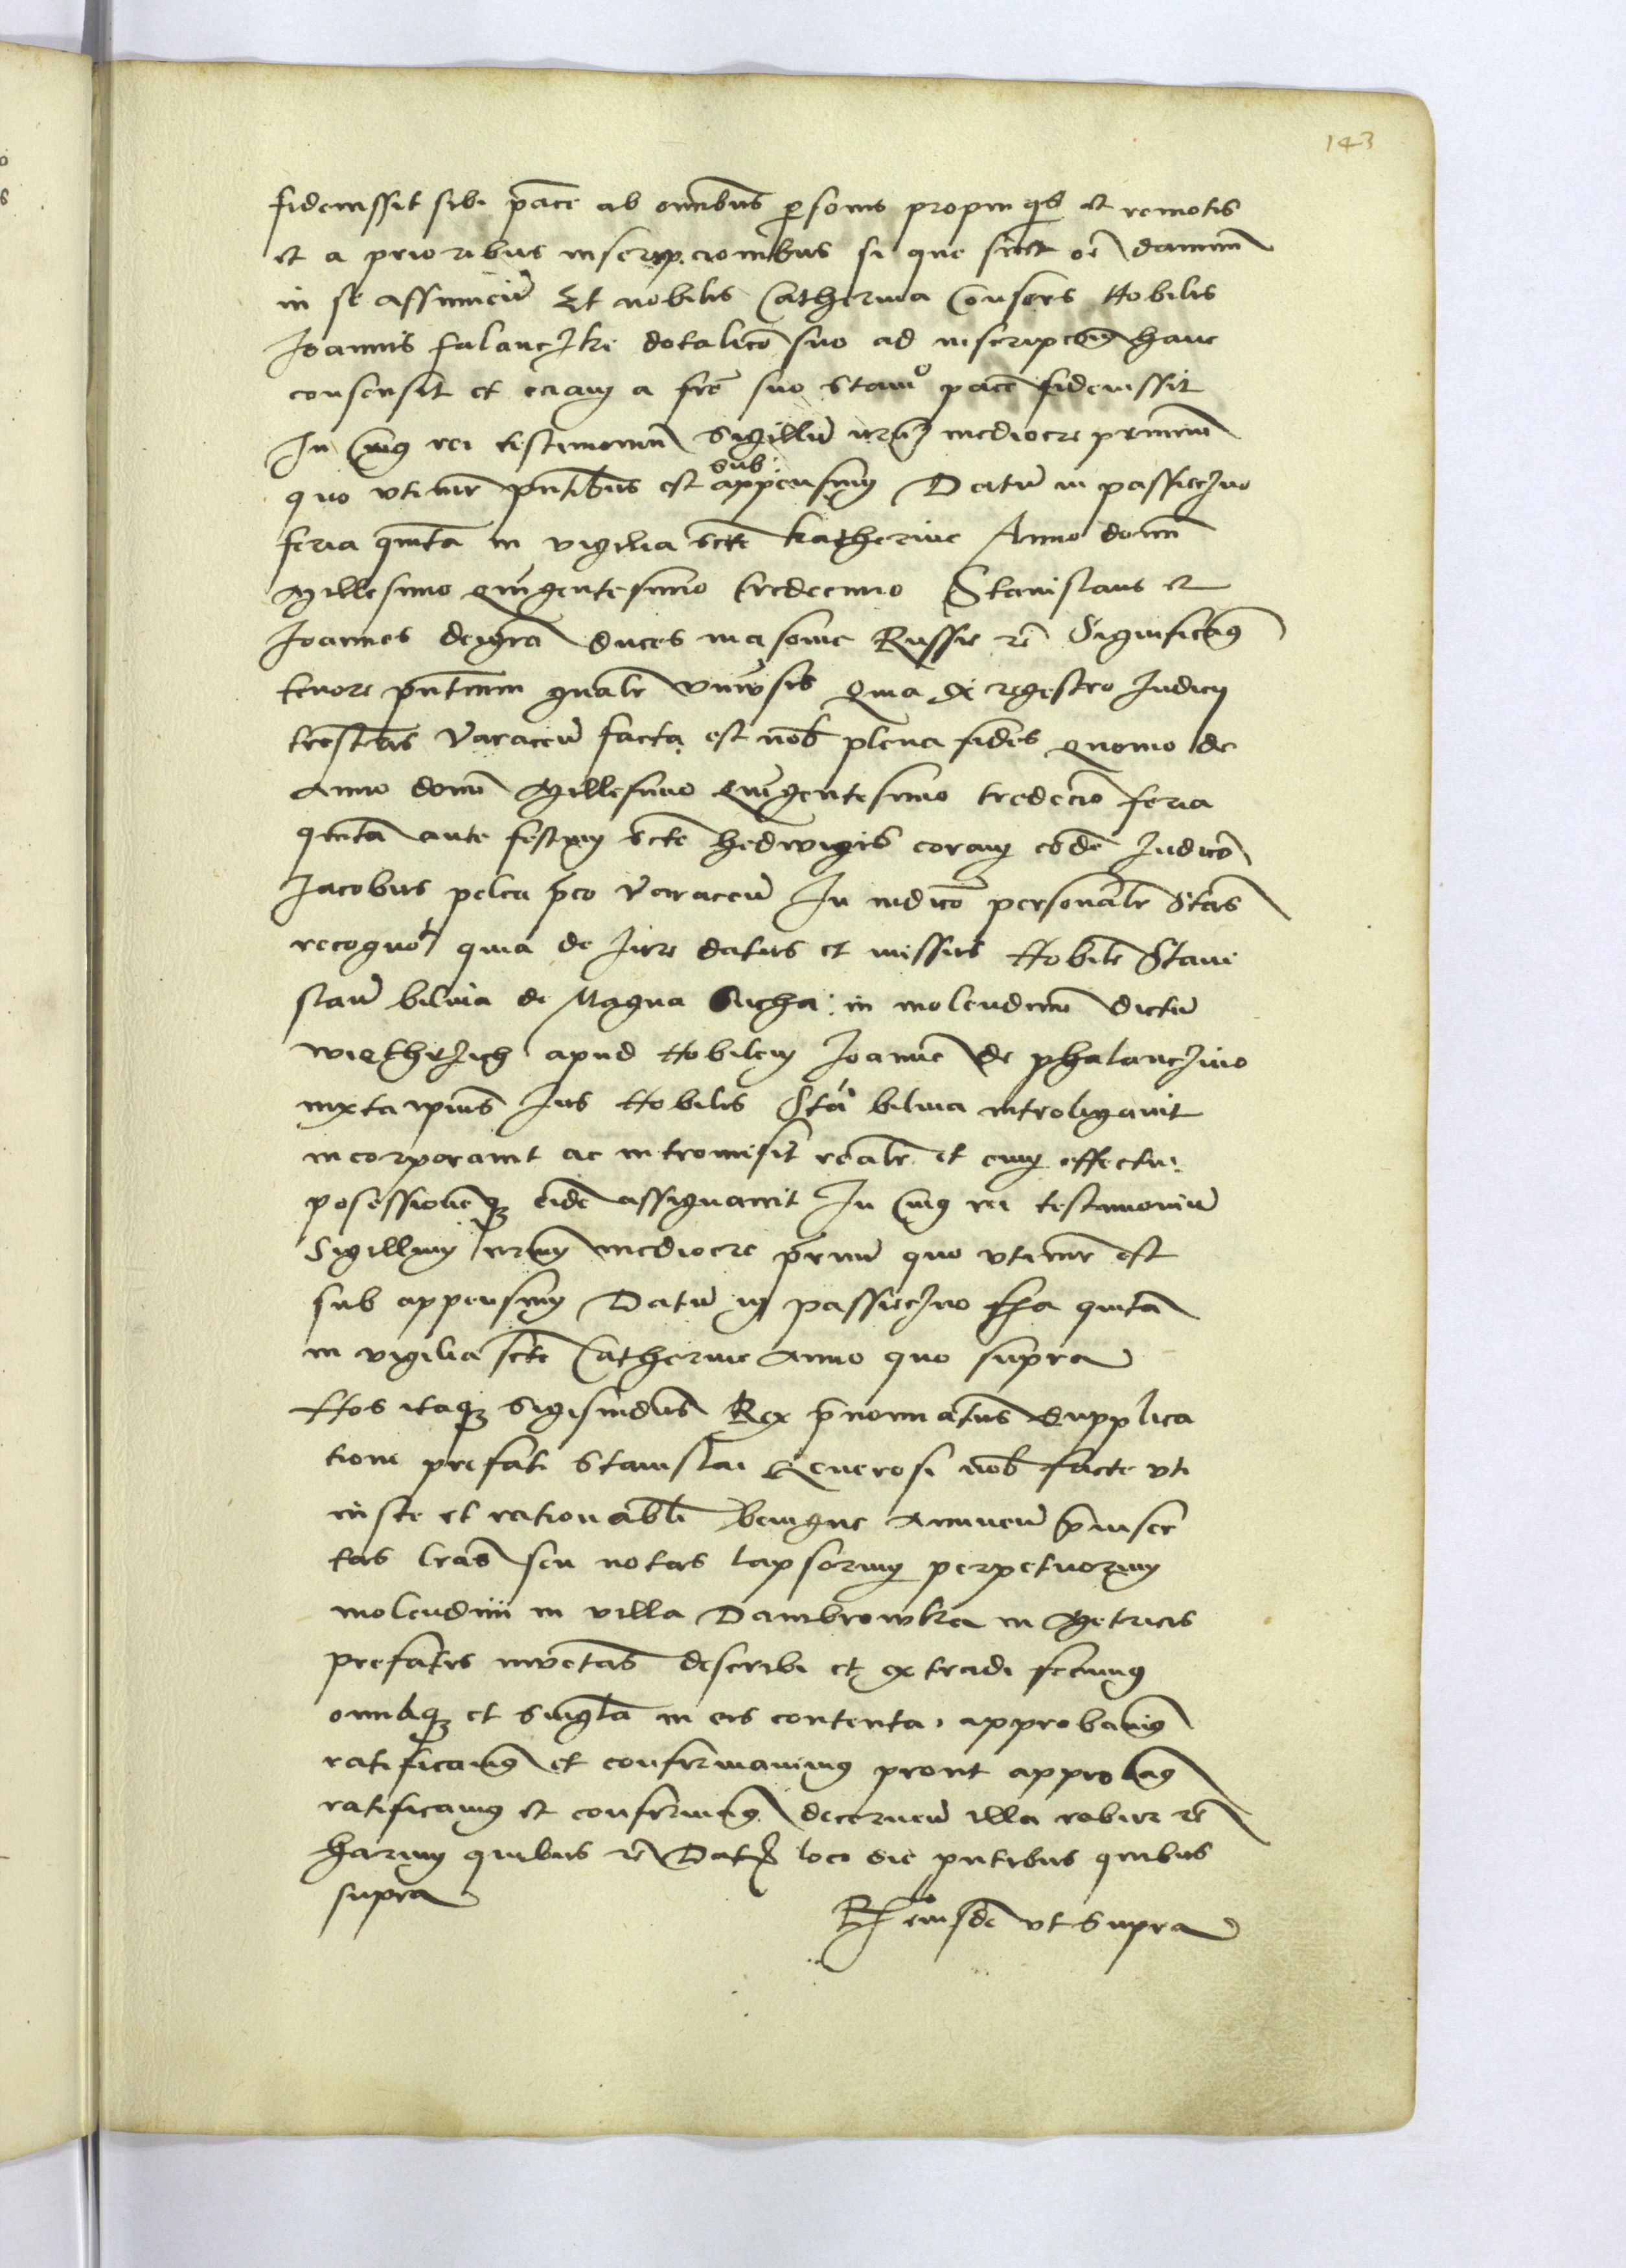 143
fideiussit sibi pace ab omnibus personis propinquis et remotis
et a prioribus inscripcionibus si que sint oē damnum
in se assumeñ Et nobilis Catherina Consors Nobilis
Joannis falanczki dotalico suo ad inscripcoēm hanc
consensit et eciam a frē suo Stanᵒ pace fideiussit
In cuius rei testimoniū Sigillū nrū mediocre primum
quo utimur pntibus est subappensum Datū in passieczno
feria quinta in vigilia scte katherine Anno domī
Millesimo quingentesimo tredecimo Stanislaus et
Joannes dei gra duces masovie Russie rē Significamus
tenore pntium gnalr universis Quia ex regestro Judicy
trestrīs Varscieñ facta est nob plena fides Quomo de
Anno domī Millesimo Quingentesimo tredecio feria
quinta ante festum scte hedwigis coram eodē Judico
Jacobus pelca pco Varscieñ In iudico personalr Stans
recognoᵗ quia de Jure datus et missus Nobilē Stani
slaū bilina de Magna Sucha in molendinū dictū
apud Nobilem Joannē de phalanczino
iuxta ipius Jus Nobilis Staī bilina introligavit
incorporavit ac intromisit realr et cum effectu
posessionēq eidē assignavit In cuius rei testimoniū
Sigillum nrum mediocre primū quo utimur est
sub appensum Datū in passieczno fīa quinta
in vigilia scte Catherine Anno quo supra
Nos itaq Sigismdus Rex pnominatus Supplica
tione prefati Stanislai Generosi nob facte uti
iuste et rationabli benigne Annueñ pinser
tas lras seu notas lapsorum perpetuorum
molendini in villa Dambrowka in Metricis
prefatis inventas describi et extradi fecimus
omniaq et singla in eis contenta approbavimus
ratificavimus et confirmavimus prout approbamus
ratificamus et confirmamus decerneñ illa robur rē
harum quibus rē Datū loco die pntibus quibus
supra
Rᵒ eiusdē ut supra